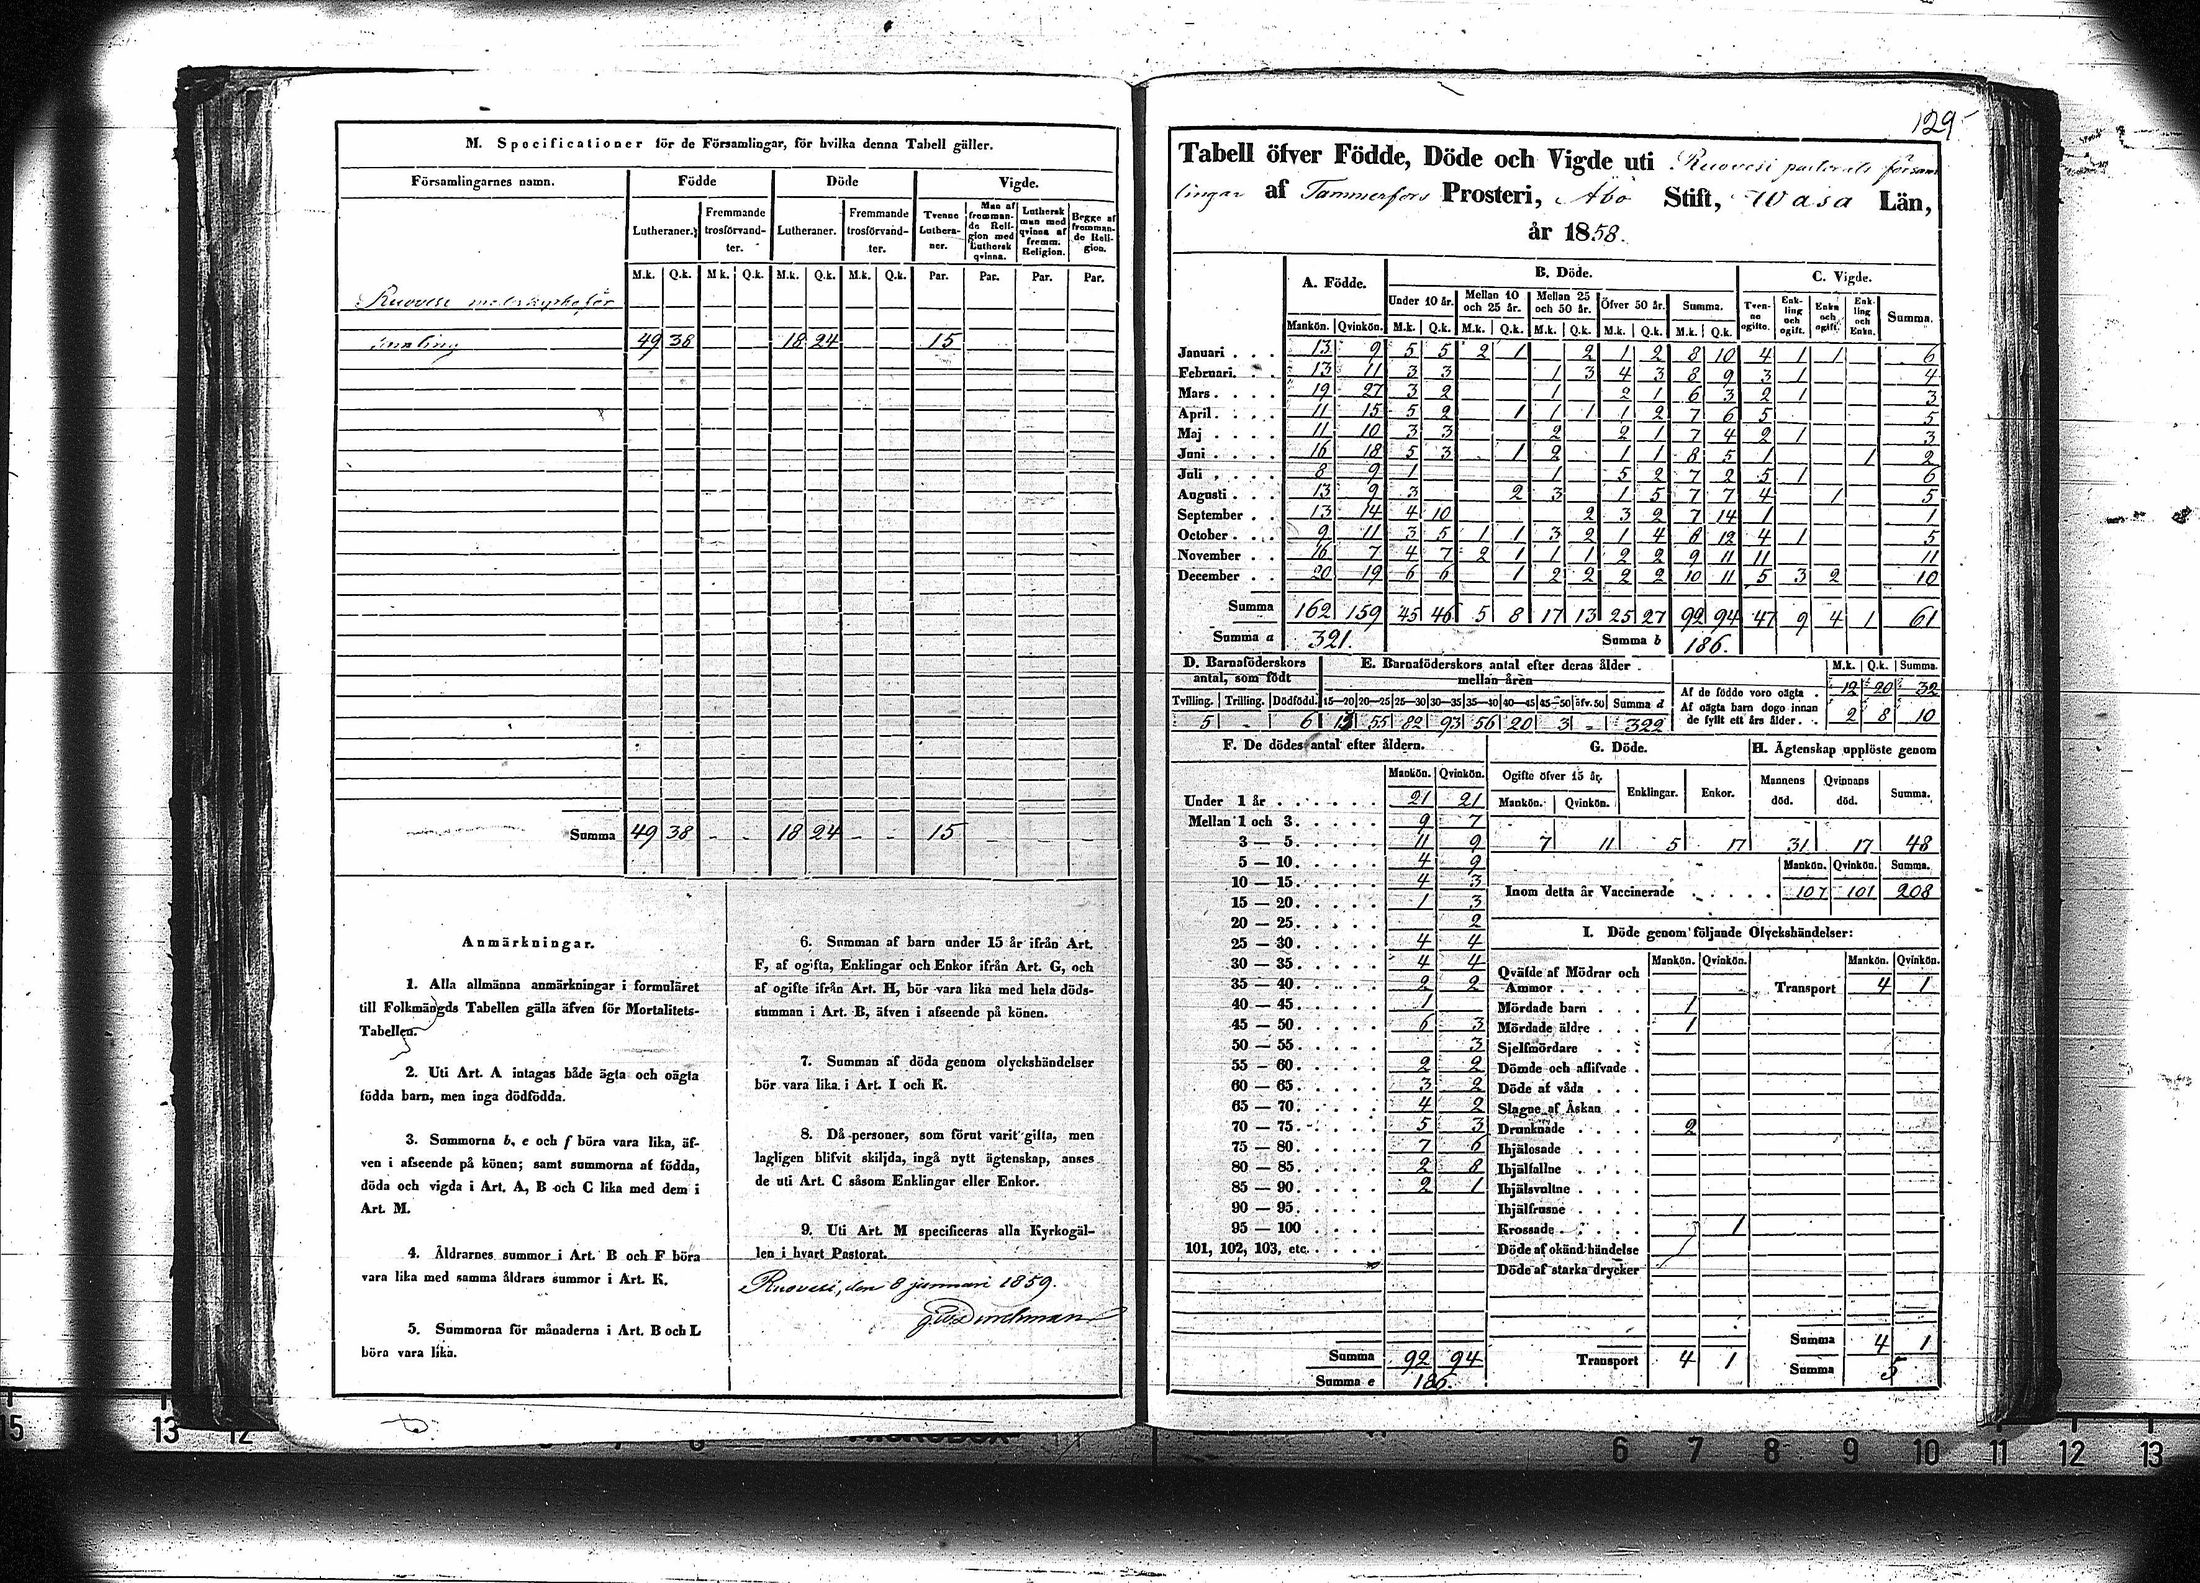 M. Specificationer för de Församlingar, för hvilka denna Tabell gäller.
Församlingarnes namn. Födde Döde Vigde.
Lutheraner. Fremmande trosförvandter. Lutheraner. Fremmande trosförvandter. Tvenne Lutheraner. Man af fremmande Religion med Luthersk qvinna. Luthersk man med qvinna af fremm. Religion. Begge af fremmande Religion.
M.k. Q.k. M.k. Q.k. M.k. Q.k. M.k. Q.k. Par. Par. Par. Par.
Ruovesi moderkyrkoför
samling 49 38 18 24 15
Summa 49 38 - - 18 24 - - 15 - - -
Anmärkningar.
1. Alla allmänna anmärkningar i formuläret
till Folkmängds Tabellen gälla äfven för Mortalitets-
Tabellen.
2. Uti Art. A intagas både ägta och oägta
födda barn, men inga dödfödda.
3. Summorna b, e och f böra vara lika, äf-
ven i afseende på könen; samt summorna af födda,
döda och vigda i Art. A, B och C lika med dem i
Art. M.
4. Åldrarnes summor i Art. B och F böra
vara lika med samma åldrars summor i Art. K.
5. Summorna för månaderna i Art. B och L
böra vara lika.
6. Summan af barn under 15 år ifrån Art.
F, af ogifta, Enklingar och Enkor ifrån Art. G, och
af ogifte ifrån Art. H, bör vara lika med hela döds-
summan i Art. B, äfven i afseende på könen.
7. Summan af döda genom olyckshändelser
bör vara lika i Art. I och K.
8. Då personer, som förut varit gifta, men
lagligen blifvit skiljda, ingå nytt ägtenskap, anses
de uti Art. C såsom Enklingar eller Enkor.
9. Uti Art. M specificeras alla Kyrkogäl-
len i hvart Pastorat.
Ruovesi, den 8 januari 1859.
129
Tabell öfver Födde, Döde och Vigde uti Ruovesi pastorats försam
lingar af Tammerfors Prosteri, Åbo Stift, Wasa Län,
år 1858.
A. Födde. B. Döde. C. Vigde.
Under 10 år. Mellan 10 och 25 år. Mellan 25 och 50 år. Öfver 50 år. Summa. Tvenne ogifte. Enkling och ogift. Enka och ogift. Enkling och Enka. Summa.
Mankön. Qvinkön. M.k. Q.k. M.k. Q.k. M.k. Q.k. M.k. Q.k. M.k. Q.k.
Januari 13 9 5 5 2 1 2 1 2 8 10 4 1 1 6
Februari 13 11 3 3 1 3 4 3 8 9 3 1 4
Mars 19 27 3 2 1 2 1 6 3 2 1 3
April 11 15 5 2 1 1 1 1 2 7 6 5 5
Maj 11 10 3 3 2 2 1 7 4 2 1 3
Juni 16 18 5 3 1 2 1 1 8 5 1 1 2
Juli 8 9 1 1 5 2 7 2 5 1 6
Augusti 13 9 3 2 3 1 5 7 7 4 1 5
September 13 14 4 10 2 3 2 7 14 1 1
October 9 11 3 5 1 1 3 2 1 4 8 12 4 1 5
November 16 7 4 7 2 1 1 1 2 2 9 11 11 11
December 20 19 6 6 1 2 2 2 2 10 11 5 3 2 10
Summa 162 159 45 46 5 8 17 13 25 27 92 94 47 9 4 1 61
Summa a 321. Summa b 186.
D. Barnaföderskors antal, som födt E. Barnaföderskors antal efter deras ålder mellan åren M.k. Q.k. Summa.
Tvilling. Trilling. Dödfödd. 15—20 20—25 25—30 30—35 35—40 40—45 45—50 öfv. 50 Summa d
5 - 6 13 55 82 93 56 20 3 - 322
Af de födde voro oägta 12 20 32
Af oägta barn dogo innan
de fyllt ett års ålder 2 8 10
F. De dödes antal efter åldern.
Mankön. Qvinkön.
Under 1 år 21 21
Mellan 1 och 3 9 7
3 — 5 11 9
5 — 10 4 9
10 — 15 4 3
15 — 20 1 3
20 — 25 2
25 — 30 4 4
30 — 35 4 4
35 — 40 2 2
40 — 45 1
45 — 50 6 3
50 — 55 3
55 — 60 2 2
60 — 65 3 2
65 — 70 4 2
70 — 75 5 3
75 — 80 7 6
80 — 85 2 8
85 — 90 2 1
90 — 95
95 — 100
101, 102, 103, etc.
Summa 92 94
Summa e 186.
G. Döde. H. Ägtenskap upplöste genom
Ogifte öfver 15 år. Enklingar. Enkor. Mannens död. Qvinnans död. Summa.
Mankön. Qvinkön.
7 11 5 17 31 17 48
Mankön. Qvinkön. Summa.
Inom detta år Vaccinerade 107 101 208
I. Döde genom följande Olyckshändelser:
Mankön. Qvinkön. Mankön. Qvinkön.
Qväfde af Mödrar och
Ammor Transport 4 1
Mördade barn 1
Mördade äldre 1
Sjelfmördare
Dömde och aflifvade
Döde af våda
Slagne af Åskan
Drunknade 2
Ihjälosade
Ihjälfallne
Ihjälsvultne
Ihjälfrusne
Krossade 1
Döde af okänd händelse
Döde af starka drycker
Summa 4 1
Transport 4 1 Summa 5
15 13 12 6 7 8 9 10 11 12 13